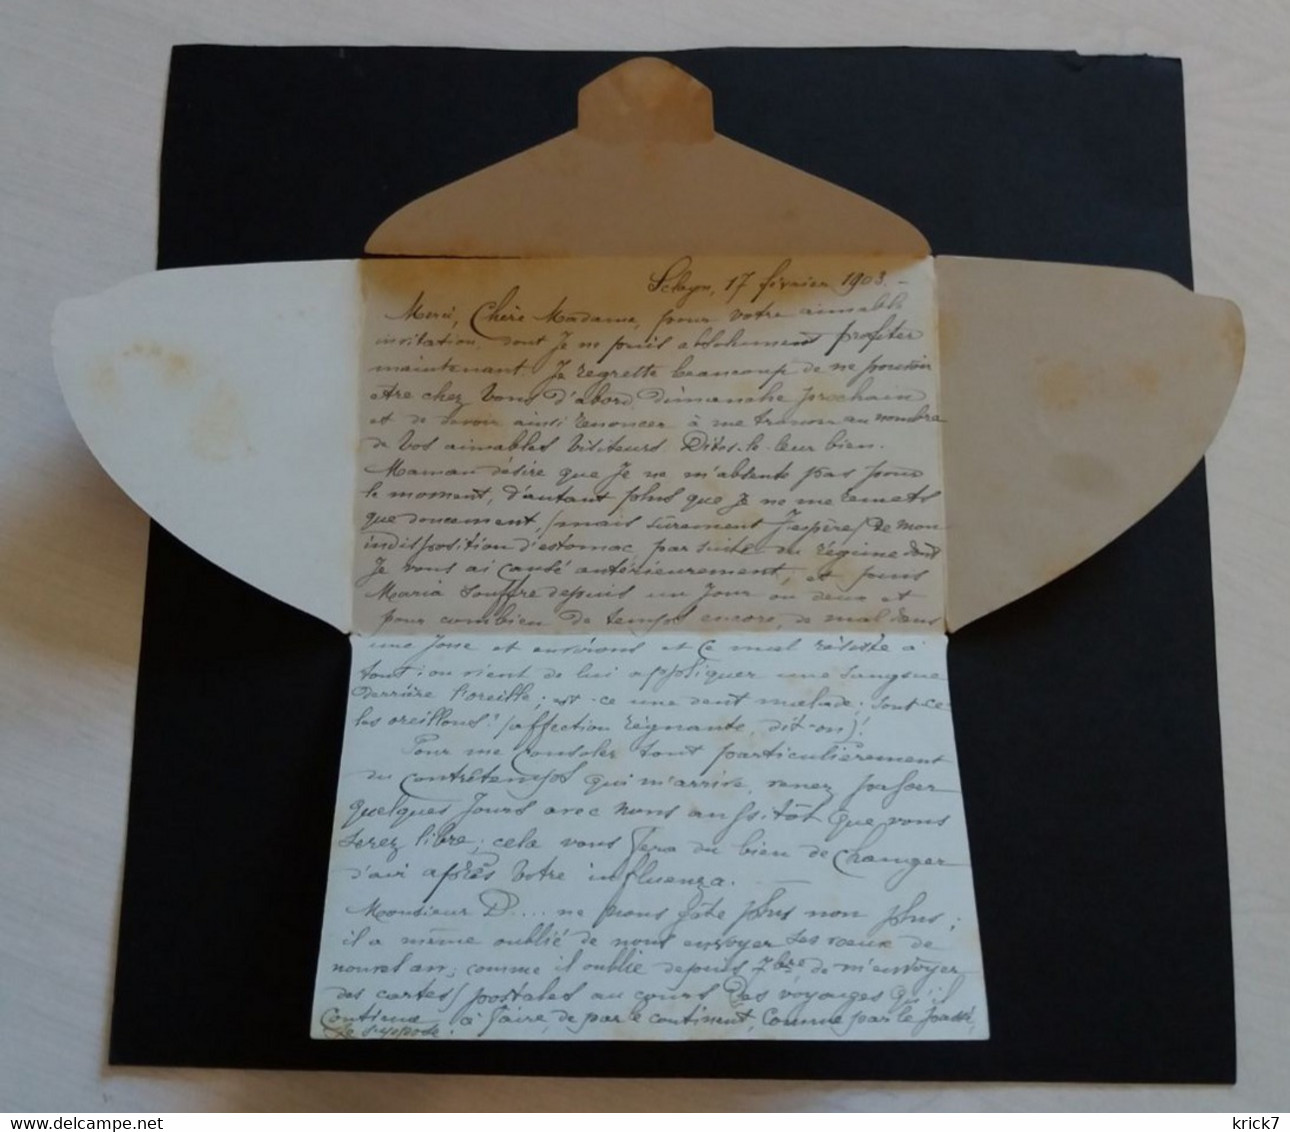 Sclayn, 17 février 1903. -
Merci, Chère Madame, pour votre aimable
invitation, dont Je ne puis absolument profiter
maintenant. Je regrette beaucoup de ne pouvoir
être chez Vous d'abord dimanche prochain
et de devoir ainsi renoncer à me trouver au nombre
de Vos aimables Visiteurs. Dites-le-leur bien.
Maman désire que Je ne m'absente pas pour
le moment, d'autant plus que Je ne me remets
que doucement, (mais surement J'espère) de mon
indisposition d'estomac, par suite du régime dont
Je vous ai causé antérieurement; et puis
Maria souffre depuis un Jour ou deux et
pour combien de temps encore, de mal dans
une Joue et environs et ce mal résiste à
tout; on vient de lui appliquer une sangsue
derrière l'oreille; est-ce une dent malade; sont-ce
les oreillons? (affection régnante, dit-on)!
Pour me consoler tout particulièrement
du contretemps qui m'arrive, venez passer
quelques Jours avec nous aussitôt que vous
serez libre; cela vous fera du bien de changer
d'air après Votre influenza. -
Monsieur D.... ne nous gâte plus non plus;
il a même oublié de nous envoyer ses voeux de
nouvel an; comme il oublie depuis 7bre de m'envoyer
des cartes postales au cours des voyages qu'il
continue à faire, de par le continent, comme par le passé,
Je suppose.
krick7